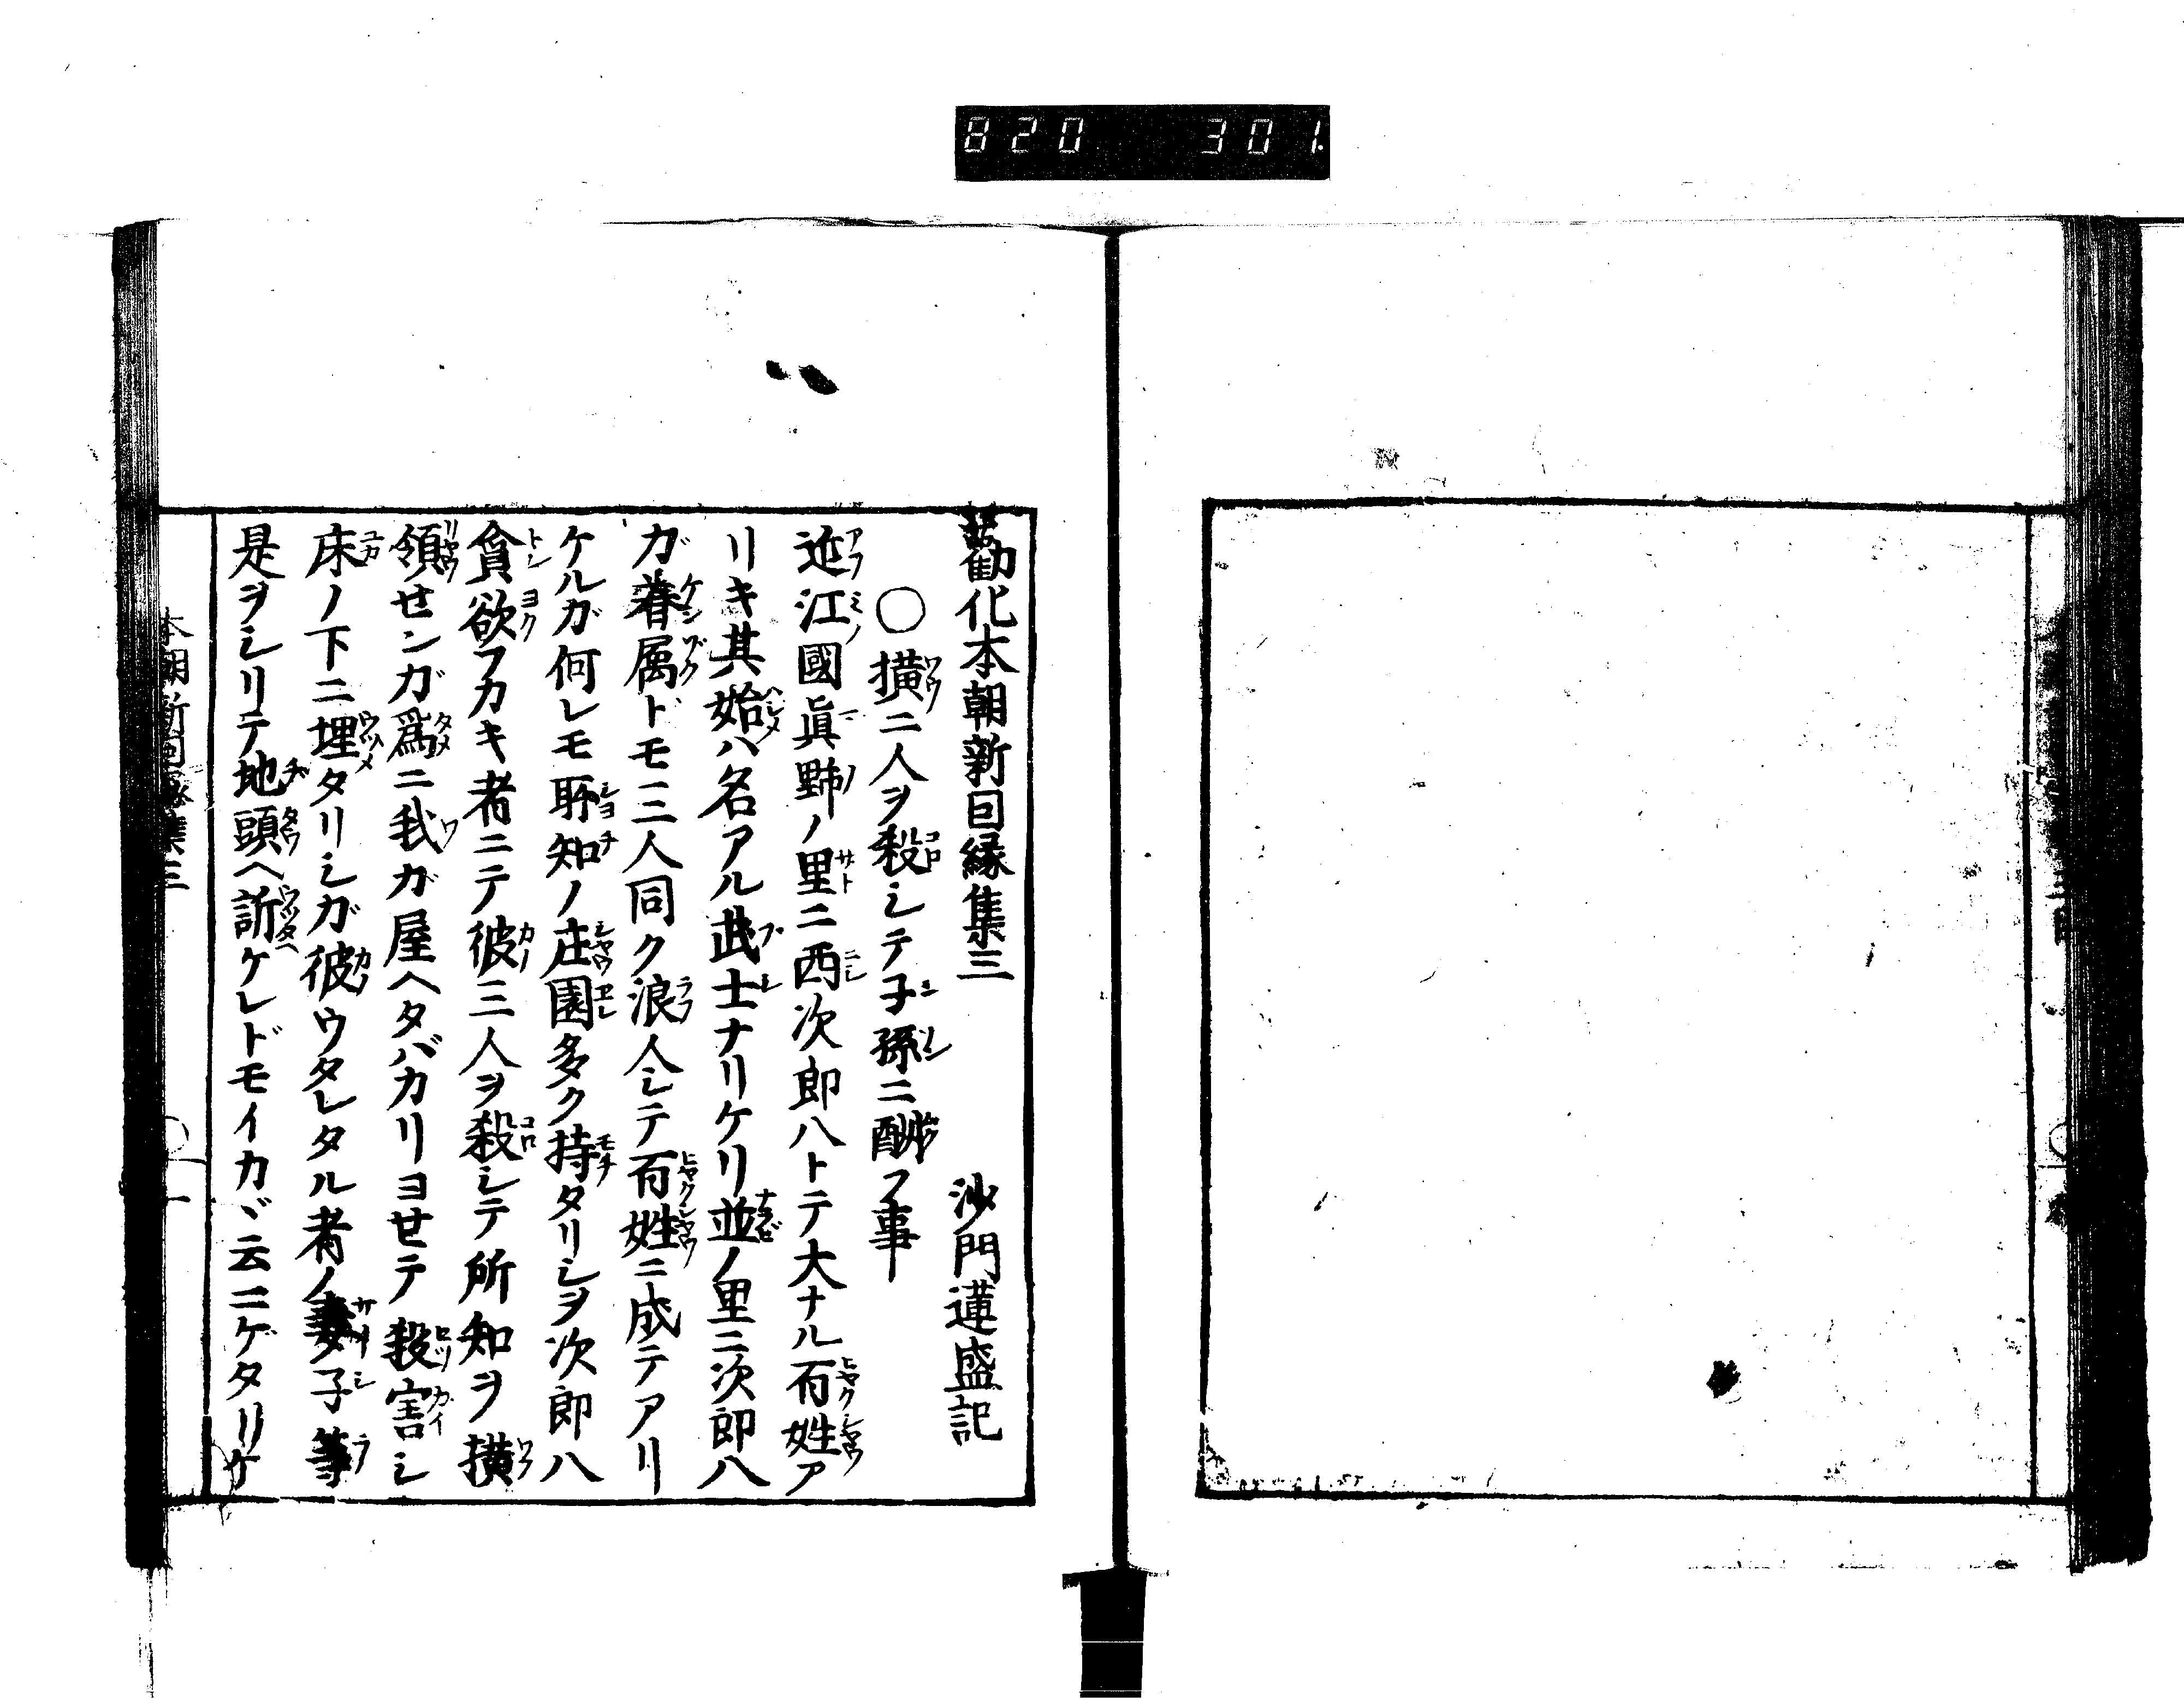 820 301
勸化本朝新因縁集三 沙門蓮盛記
○撗ニ人ヲ殺シテ子孫ニ酬フ事
近江國眞野ノ里ニ西次郎八トテ大ナル百姓ア
リキ其始ハ名アル武士ナリケリ並ノ里ニ次郎八
ガ眷属ドモ三人同ク浪人シテ百姓ニ成テアリ
ケルガ何レモ所知ノ庄園多ク持タリシヲ次郎八
貪欲フカキ者ニテ彼三人ヲ殺シテ所知ヲ撗
領センガ爲ニ我ガ屋ヘタバカリヨセテ殺害シ
床ノ下ニ埋タリシガ彼ウタレタル者ノ妻子等
是ヲシリテ地頭ヘ訴ケレドモイカヾ云ニゲタリケ
本朝新因縁集三